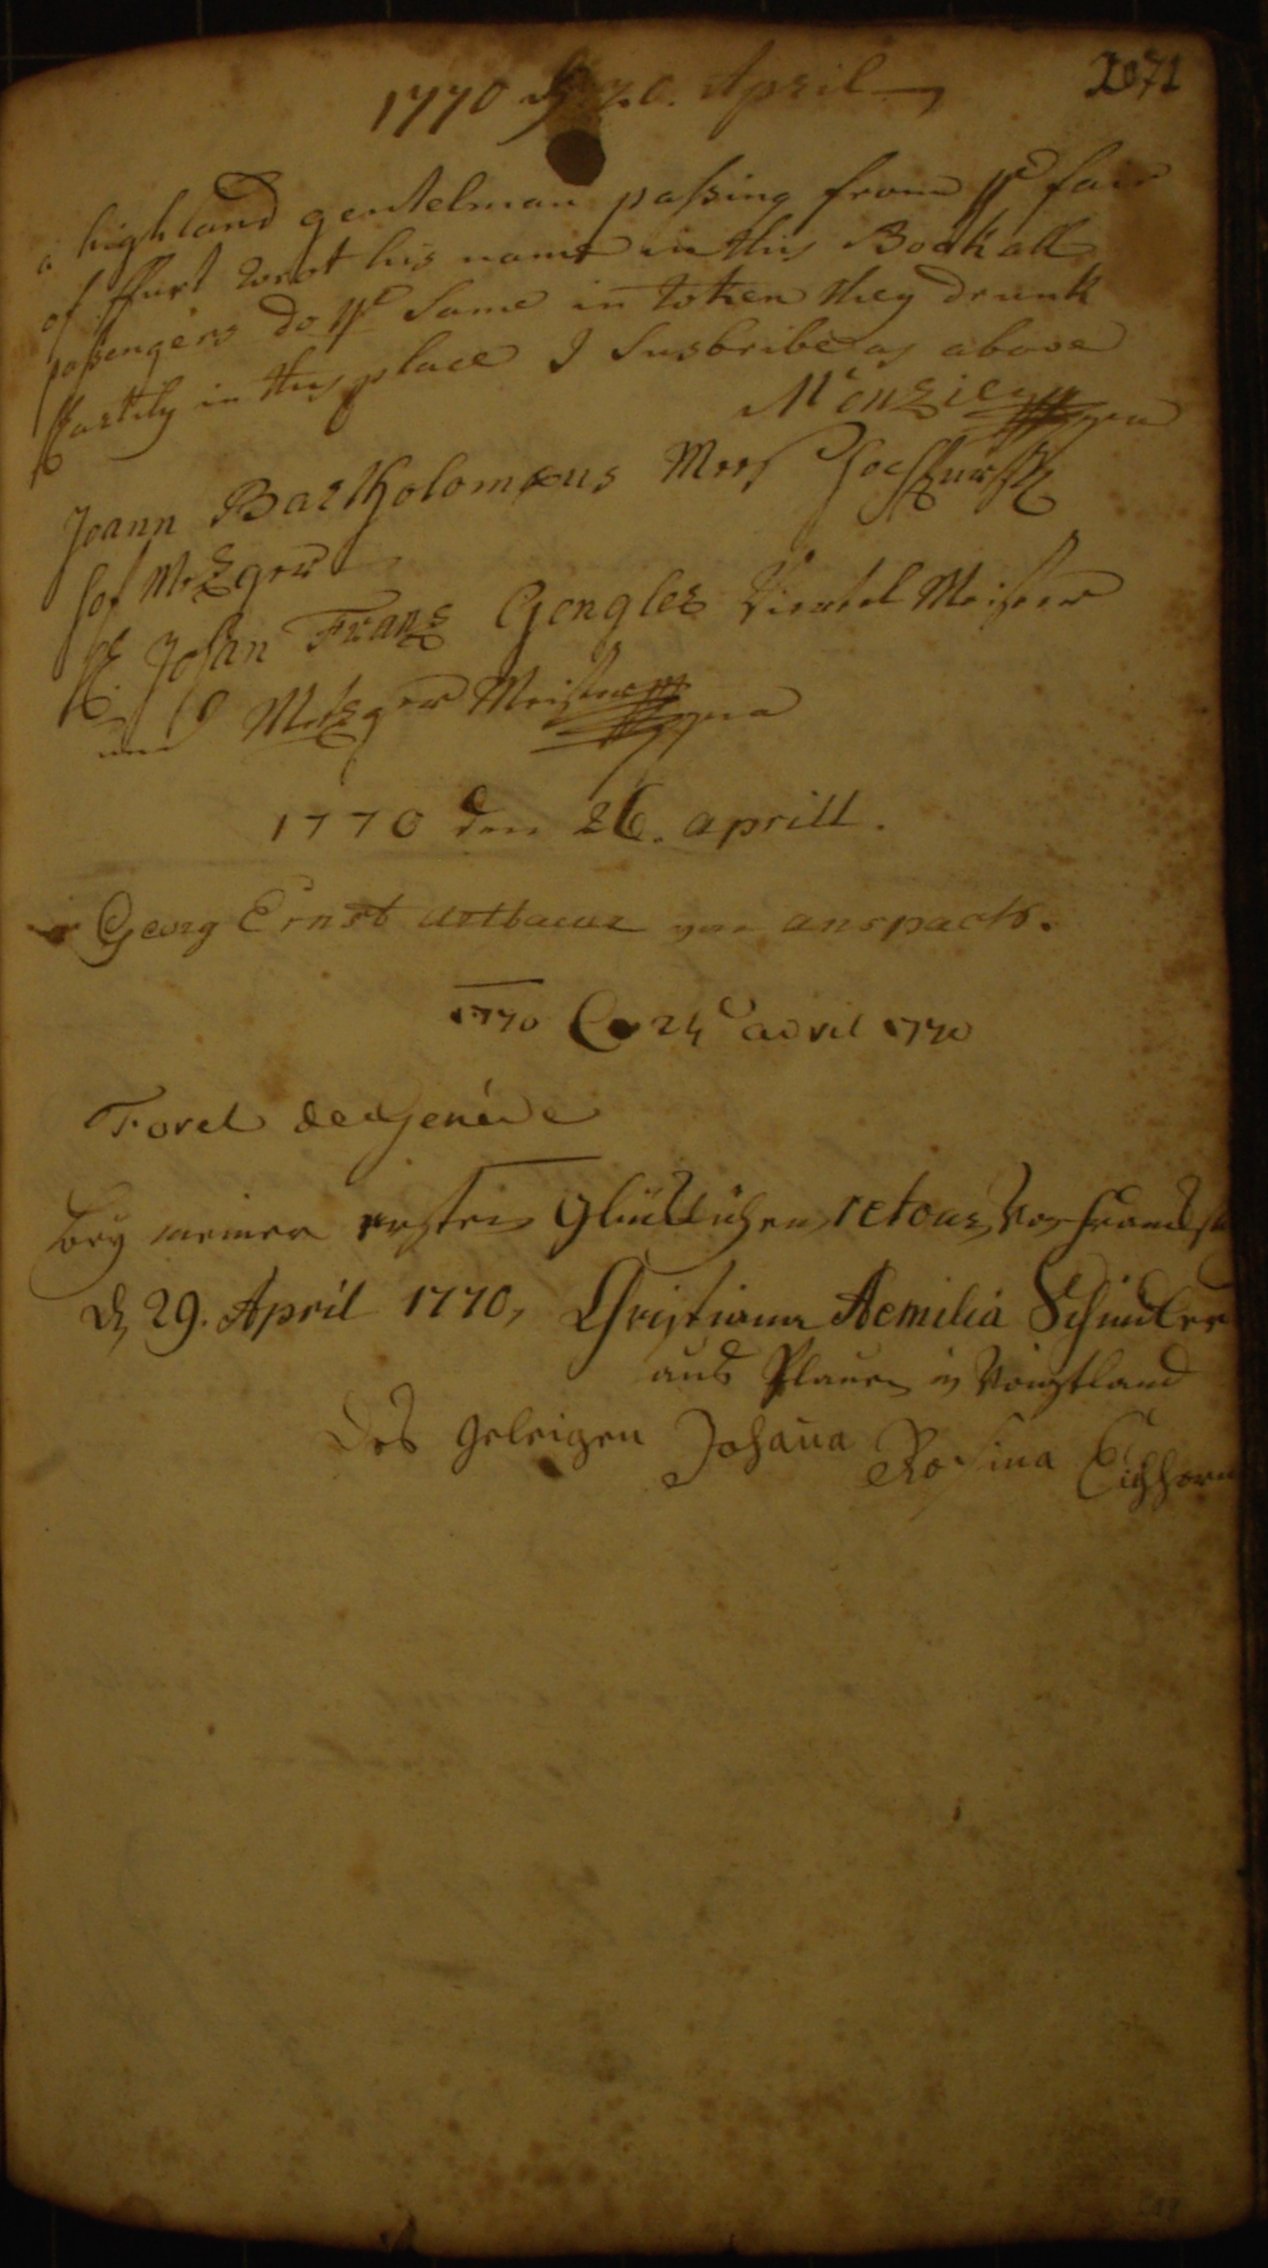 2071
1770 d. 20. April
a highland gentelman passing from ye fair
of ffurt wrot his name in this Book all
passengers do ye same in token they drunk
hartily in this place I Susbribe as above
Menzies
Joann Bartholomæus
Hof Metzger
Johan Frantz Gengler Viertel Meister
und Metzger Meister
1770 den 26. aprill.
Georg Ernst von anspach.
1770 Ce 24e avril 1770
Forel de Genève
bey meiner ersten Glücklichen retour von
d. 29. April 1770, Christiana Aemilia Schindler
aus Plauen in Voigtland
Des Geleigen Johaña Rosina Eichhorn